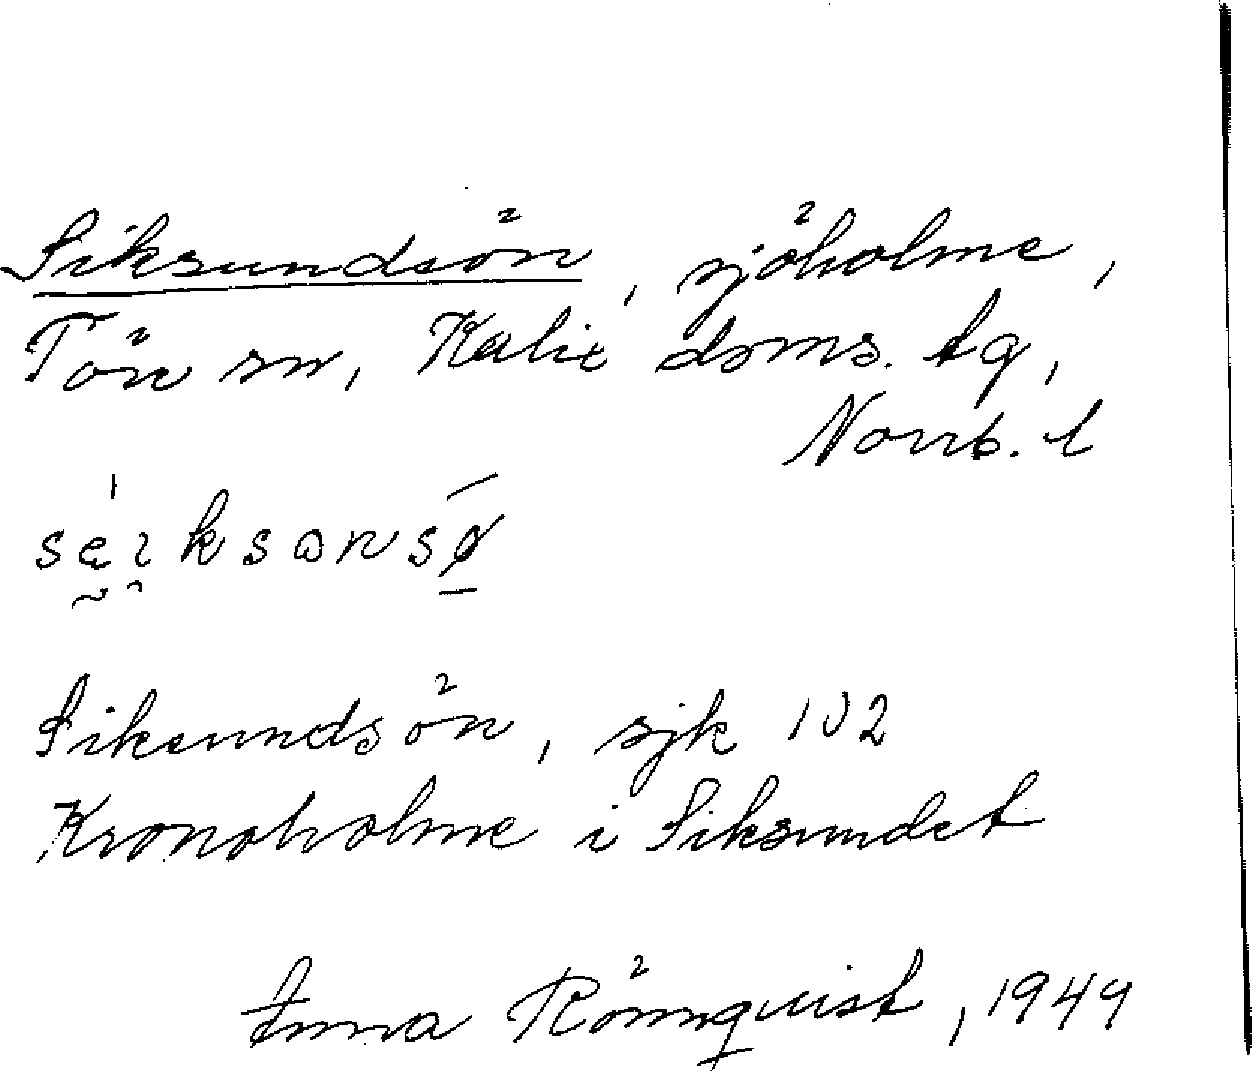 Siksundsön, sjöholme,
Töre sn, Kalix doms. tg,
Norrb. l
Siksundsön, sjk 102
Kronoholme i Siksundet
Anna Rönnqvist, 1949